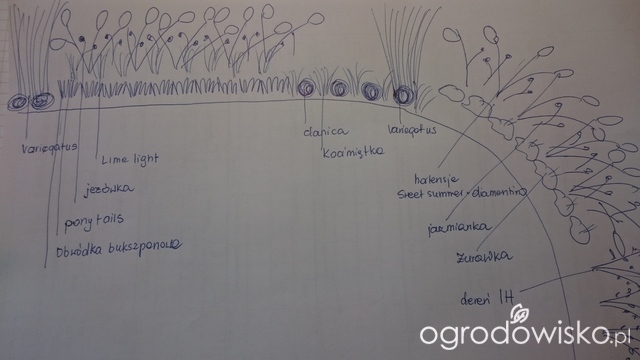 Variegatus
Lime light
jeżówka
pony tails
Obwódka bukszpanowa
danica
Kocimiętka
Variegatus
hortensje
Sweet summer + diamentino
jarmianka
Żurawka
dereń IH
ogrodowisko.pl